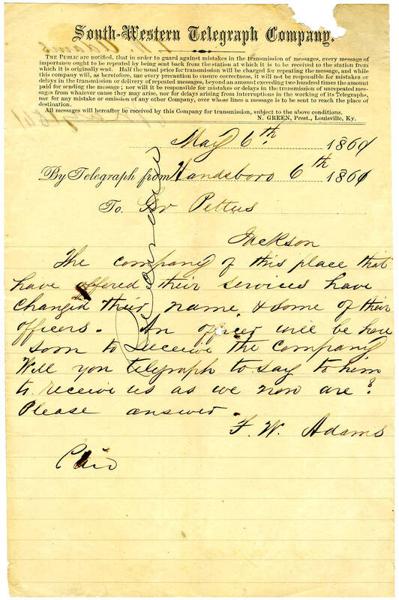 South-Western Telegraph Company.
THE PUBLIC ARE notified, that in order to guard against mistakes in the transmission of messages, every message of
importance ought to be repeated by being sent back from the station at which it is to be received to the station from
which it is originally sent. Half the usual price for transmission will be charged for repeating the message, and while
this company will, as heretofore, use every precaution to ensure correctness, it will not be responsible for mistakes or
delays in the transmission or delivery of repeated messages, beyond an amount exceeding two hundred times the amount
paid for sending the message; nor will it be responsible for mistakes or delays in the transmission of unrepeated messages
from whatever cause they may arise, nor for delays arising from interruptions in the working of its Telegraphs,
nor for any mistake or omission of any other Company, over whose lines a message is to be sent to reach the place of
destination.
All messages will hereafter be received by this Company for transmission, subject to the above conditions.
N. GREEN, Prest., Louisville, Ky.
May 6th. 1861
By Telegraph from Handsboro 6th 1861
To Gov Pettus
Jackson
The company of this place that
have offered their services have
changed their name, & some of their
officers. An officer will be here
soon to receive the company
Will you telegraph to say to him
to receive us as we now are?
Please answer
F. W. Adams
Paid